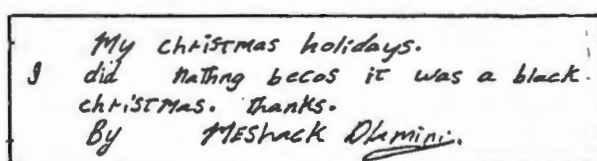 My christmas holidays.
I did nathng becos it was a black
christmas. thanks.
By MEShack Dlamini.